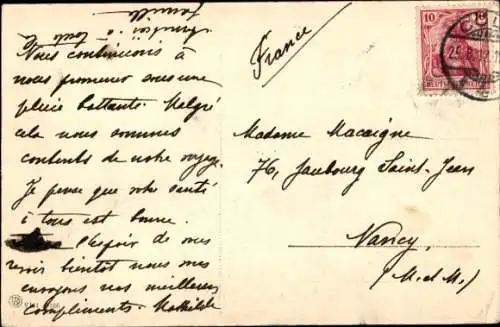 Nous continuons à
nous promener sous une
pluie battante. Malgré
cela nous sommes
contents de notre voyage.
Je pense que votre santé
à tous est bonne.
l'espoir de vous
revoir bientôt nous vous
envoyons nos meilleurs
compliments. Mathilde
famille
à toute la
France
10
Madame Macaigne
76, Faubourg Saint-Jean
Nancy.
(M. et M.)